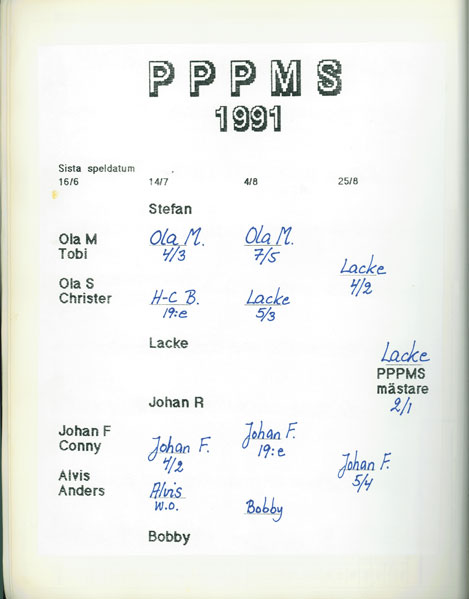 PPPMS
1991
Sista speldatum
16/6 14/7 4/8 25/8
Stefan
Ola M Ola M. Ola M.
Tobi 4/3 7/5
Lacke
4/2
Ola S
Christer H-C B. Lacke
19:e 5/3
Lacke
Lacke
PPPMS
mästare
2/1
Johan R
Johan F Johan F.
Conny Johan F. 19:e
4/2
Johan F.
5/4
Alvis
Anders Alvis
w.o. Bobby
Bobby